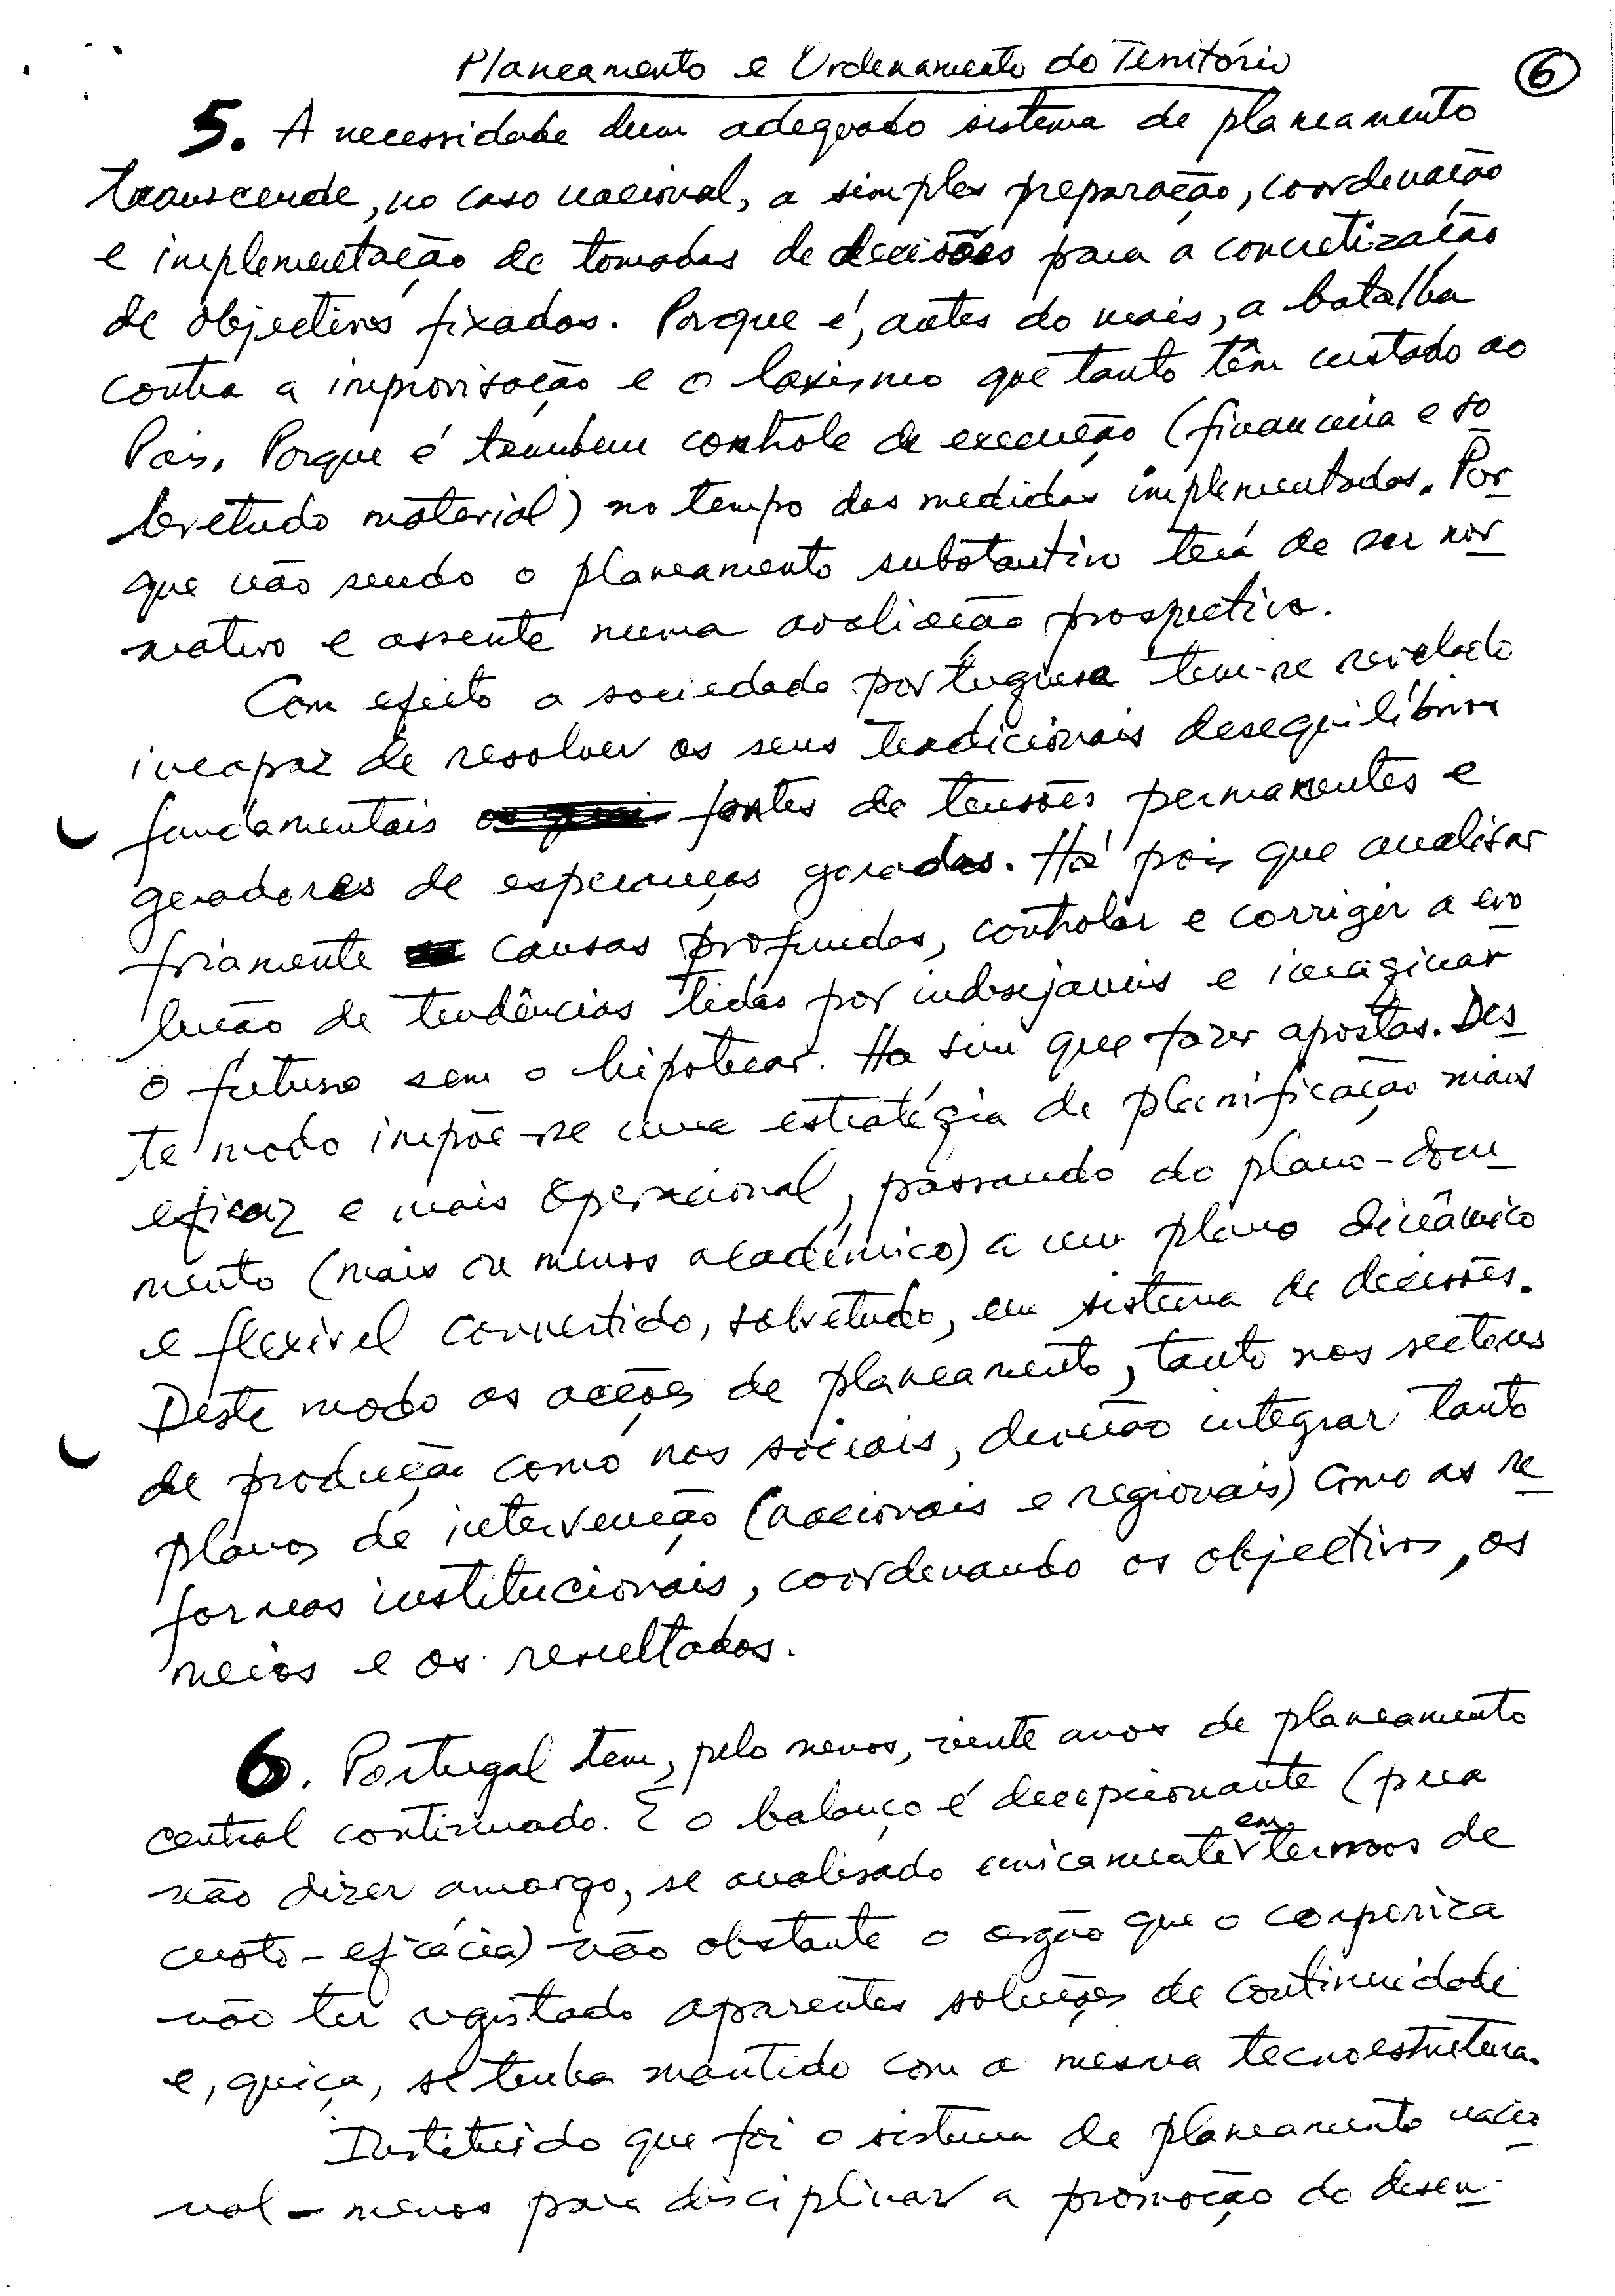 Planeamento e Ordenamento do Território
6
5. A necessidade dum adequado sistema de planeamento
transcende, no caso nacional, a simples preparação, coordenação
e implementação de tomadas de decisões para a concretização
de objectivos fixados. Porque é, antes do mais, a batalha
contra a improvisação e o laxismo que tanto têm custado ao
País. Porque é também controle de execução (financeira e so
bretudo material) no tempo das medidas implementadas. Por
que não sendo o planeamento substantivo terá de ser nor
mativo e assente numa avaliação prospectiva.
Com efeito a sociedade portuguesa tem-se revelado
incapaz de resolver os seus tradicionais desequilíbrios
fundamentais fontes de tensões permanentes e
geradores de esperanças goradas. Há pois que analisar
friamente causas profundas, controlar e corrigir a evo
lução de tendências tidas por indesejáveis e imaginar
o futuro sem o hipotecar. Ha sim que fazer apostas. Des
te modo impõe-se uma estratégia de planificação mais
eficaz e mais operacional, passando do plano-docu
mento (mais ou menos académico) a um plano dinâmico
e flexivel convertido, sobretudo, em sistema de decisões.
Deste modo as acções de planeamento, tanto nos sectores
de produção como nos sociais, deverão integrar tanto
planos de intervenção (nacionais e regionais) como as re
formas institucionais, coordenando os objectivos, os
meios e os resultados.
6. Portugal tem, pelo menos, vinte anos de planeamento
central continuado. E o balanço é decepcionante (para
não dizer amargo, se analisado unicamente em termos de
custo-eficácia) não obstante o orgão que o corporiza
não ter registado aparentes soluções de continuidade
e, quiça, se tenha mantido com a mesma tecnoestrutura.
Instituido que foi o sistema de planeamento nacio
nal - menos para disciplinar a promoção do desen-